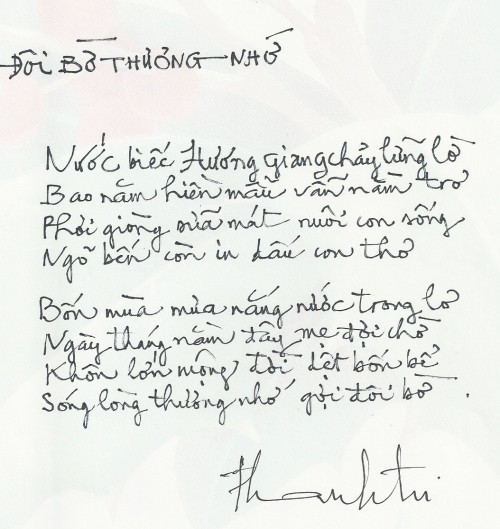 ĐÔI BỜ THƯƠNG NHỚ
Nước biếc Hương giang chảy lững lờ
Bao năm hiền mẫu vẫn nằm trơ
Phơi giòng sữa mát nuôi con sống
Ngõ bến còn in dấu con thơ
Bốn mùa mưa nắng nước trong lơ
Ngày tháng nằm đây mẹ đợi chờ
Khôn lớn mộng đời dệt bốn bể
Sóng lòng thương nhớ gởi đôi bờ.
Thanh Tri